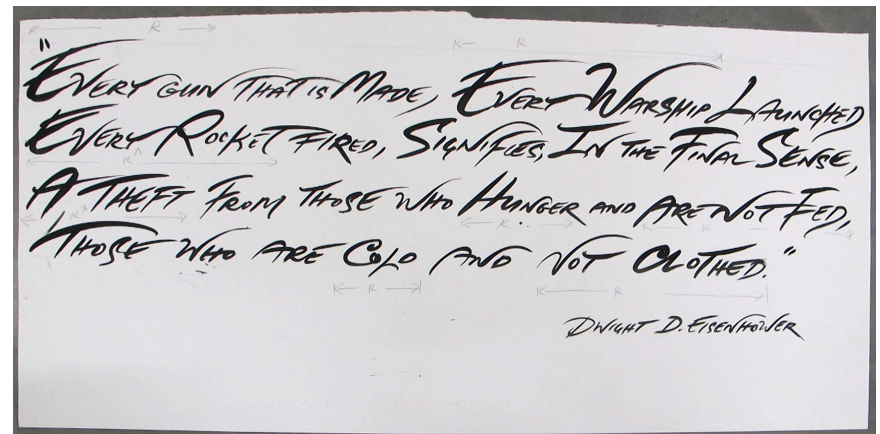 "Every gun that is Made, Every Warship Launched
Every Rocket fired, Signifies, In the Final Sense,
A Theft From those who Hunger and Are Not Fed,
Those who are Cold and not clothed."
Dwight D. Eisenhower
R R
R
R R R
R R